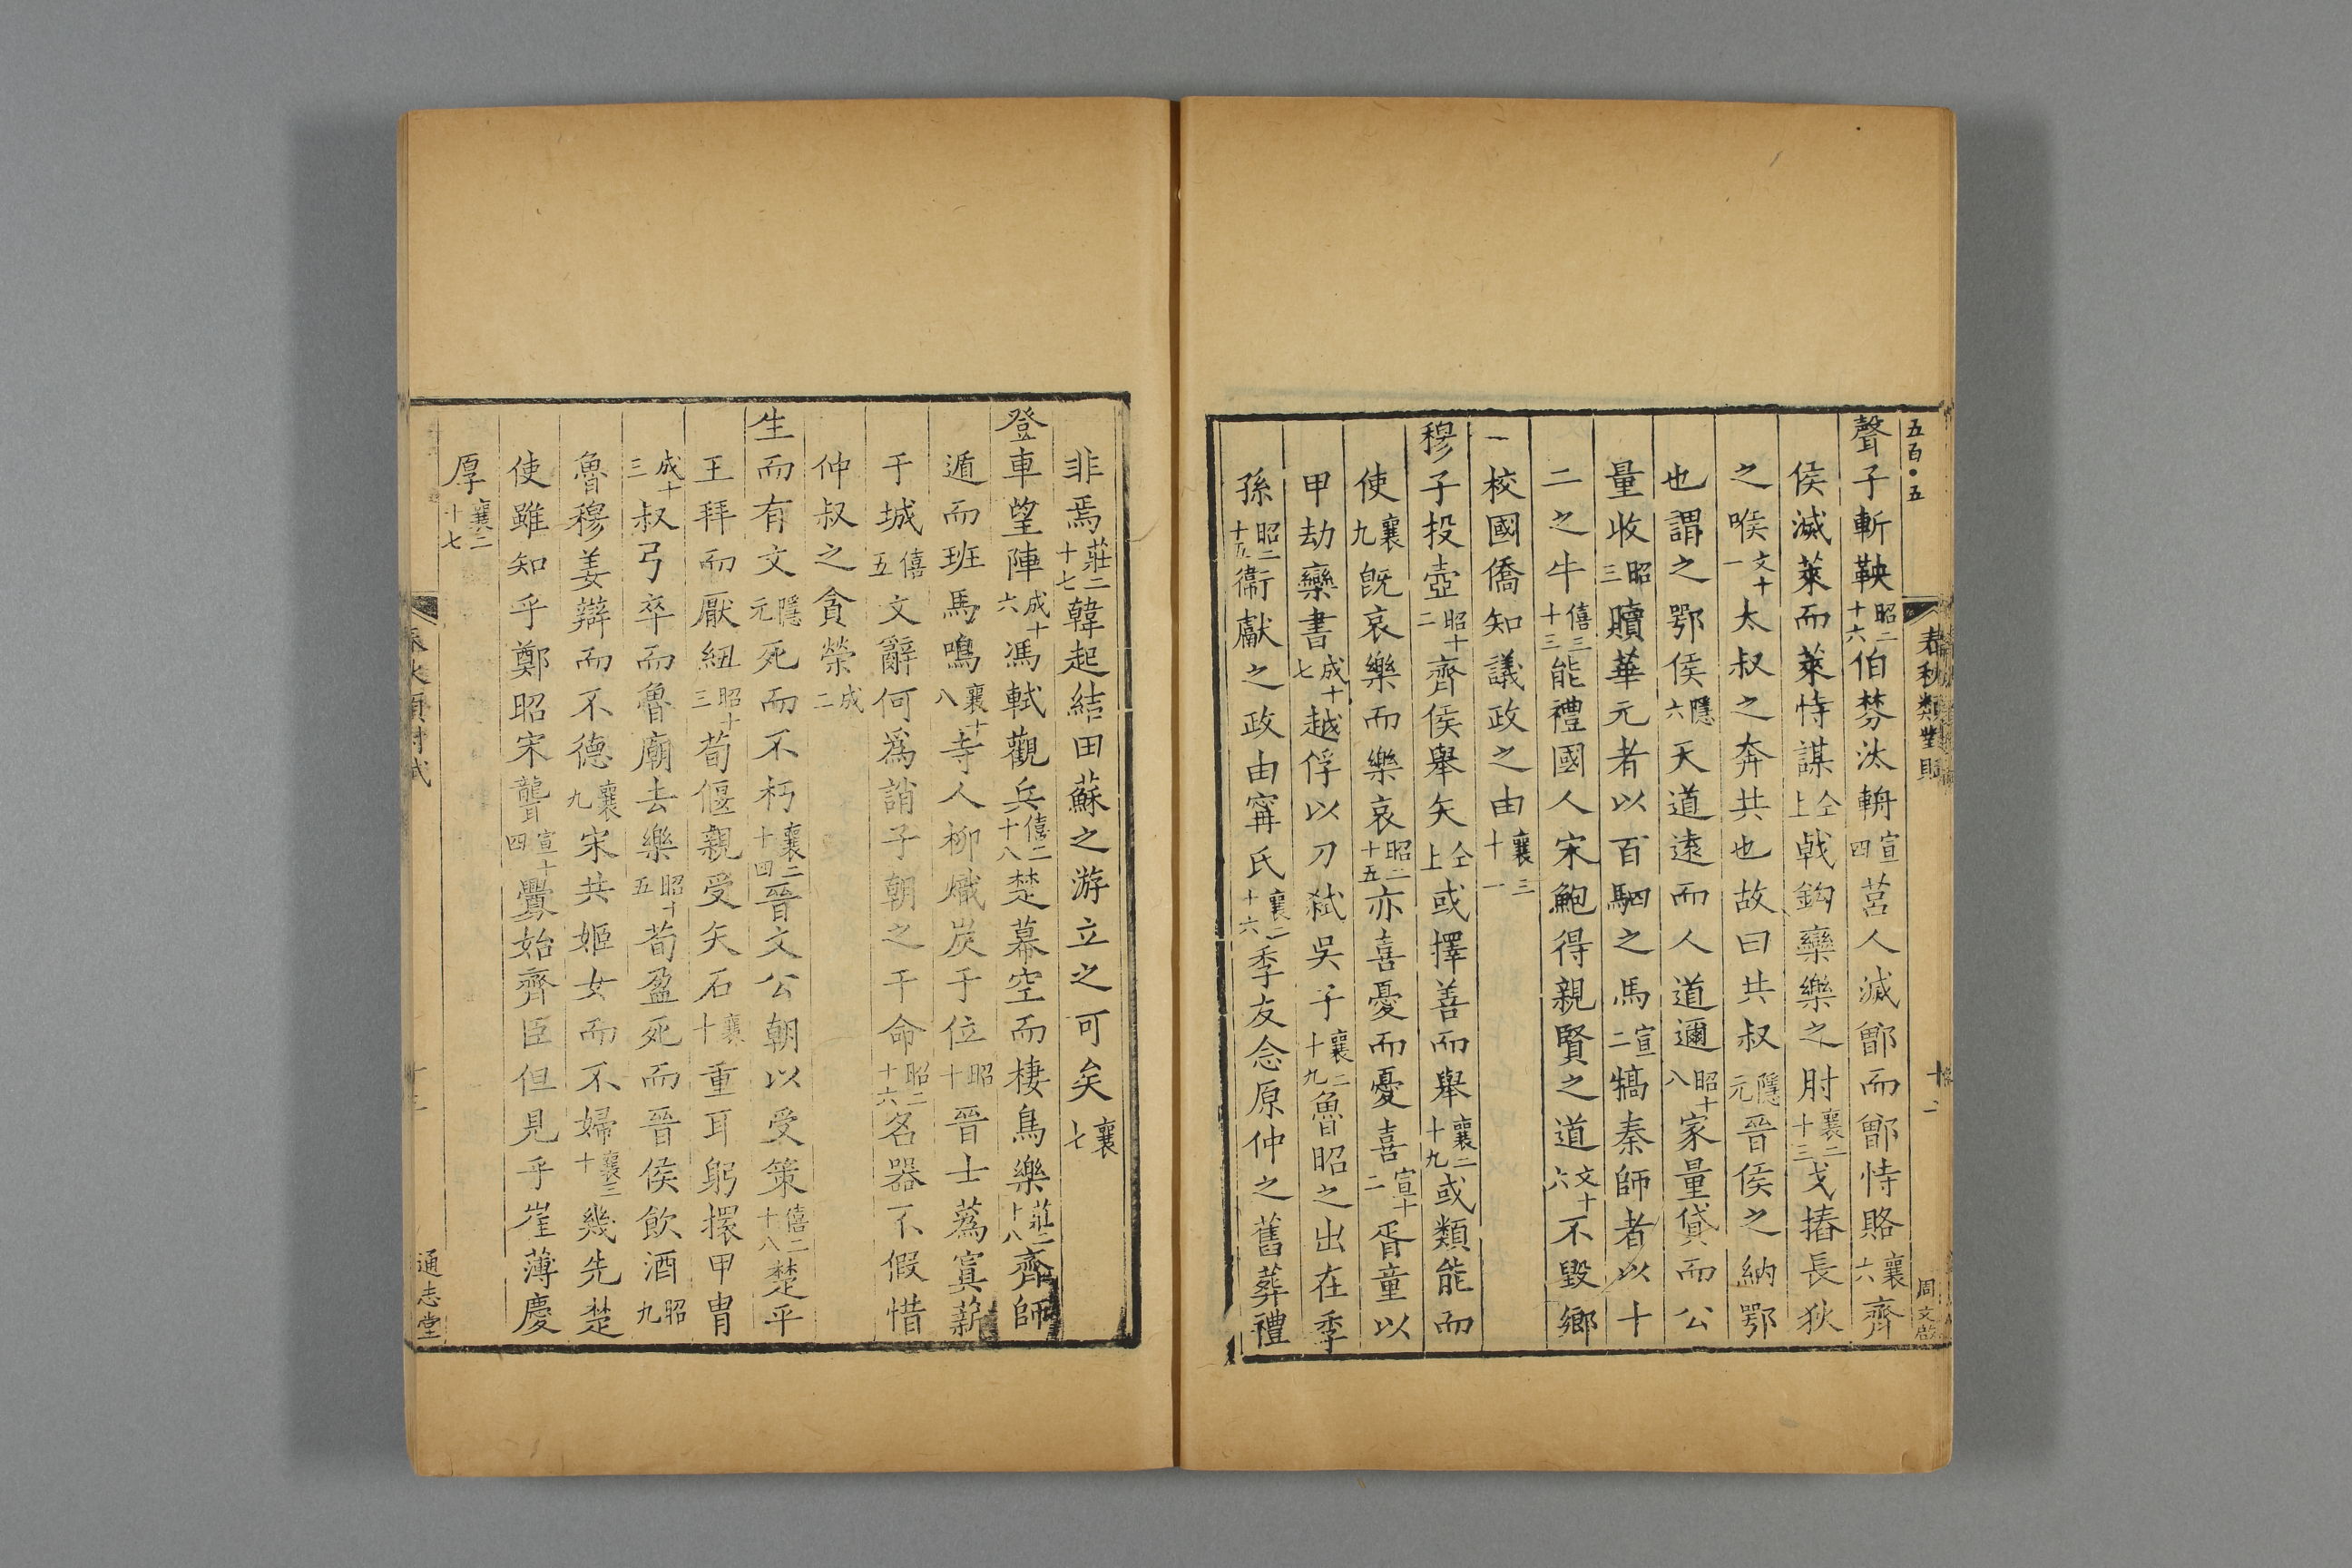 五百•五
春秋類對賦
周文啟
聲子斬鞅昭二十六伯棼汰輈宣四莒人滅鄫而鄫恃賂襄六齊
侯滅萊而萊恃謀仝上戟鈎欒樂之肘襄二十三戈摏長狄
之喉文十一太叔之奔共也故曰共叔隱元晉侯之納鄂
也謂之鄂侯隱六天道遠而人道邇昭十八家量貸而公
量收昭三贖華元者以百駟之馬宣二犒秦師者以十
二之牛僖三十三能禮國人宋鮑得親賢之道文十六不毀鄉
一校國僑知議政之由襄三十一
穆子投壺昭十二齊侯舉矢仝上或擇善而舉襄二十九或類能而
使襄九旣哀樂而樂哀昭二十五亦喜憂而憂喜宣十二胥童以
甲劫欒書成十七越俘以刀弑吳子襄二十九魯昭之出在季
孫昭二十五衞獻之政由甯氏襄二十六季友念原仲之舊葬禮
非焉莊二十七韓起結田蘇之游立之可矣襄七
登車望陣成十六馮軾觀兵僖二十八楚幕空而棲鳥樂莊二十八齊師
遁而班馬鳴襄十八寺人柳熾炭于位昭十晉士蒍寘薪
于城僖五文辭何爲誚子朝之干命昭二十六名器不假惜
仲叔之貪榮成二
生而有文隱元死而不朽襄二十四晉文公朝以受策僖二十八楚平
王拜而厭紐昭十三荀偃親受矢石襄十重耳躬擐甲胄
成十三叔弓卒而魯廟去樂昭十五荀盈死而晉侯飲酒昭九
魯穆姜辯而不德襄九宋共姬女而不婦襄三十幾先楚
使雖知乎鄭昭宋聾宣十四釁始齊臣但見乎崔薄慶
厚襄二十七
通志堂